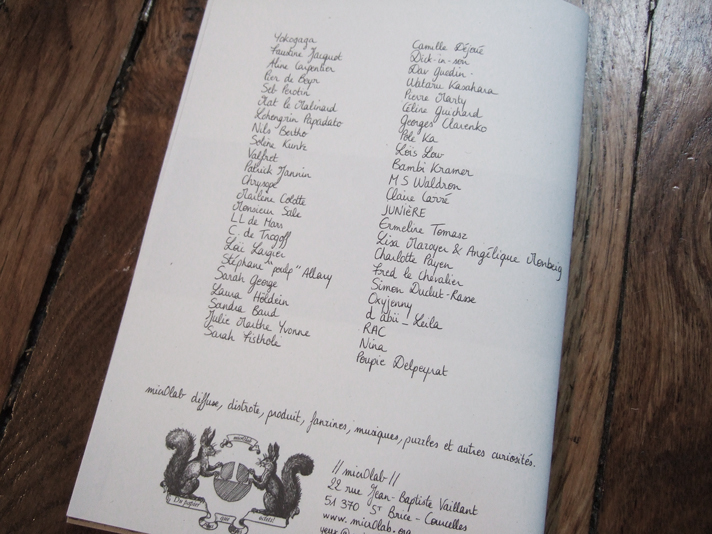 Yokogaga
Faustine Jacquot
Aline Carpentier
Pier de Beyr
Seb Perotin
Mat le Malinard
Lohengrin Papadato
Nils Bertho
Solène Kuntz
Valfret
Patrick Jannin
Chrysope
Marlène Colette
Monsieur Sale
LL de Mars
C. de Trogoff
Loïc Largier
Stéphane "le poulp" Allary
Sarah George
Laura Holdein
Sandra Baud
Julie Marthe Yvonne
Sarah Fisthole
Camille Déjoué
Dick-in-son
Dav Guedin
Wataru Kasahara
Pierre Marty
Céline Guichard
Georges Clarenko
Pole Ka
Loïs Low
Bambi Kramer
M S Waldron
Claire Carré
JUNIÈRE
Ermeline Tomasz
Lisa Maroyer & Angélique Monbeig
Charlotte Payen
Fred le Chevalier
Simon Dudut-Rasse
Oxyjenny
d'abü_Leila
RAC
Nina
Poupie Delpeyrat
micr0lab diffuse, distrote, produit, fanzines, musiques, puzzles et autres curiosités.
micr0lab
Du papier
//micr0lab//
22 rue Jean-Baptiste Vaillant
51 370 St Brice-Courcelles
www.micr0lab.org